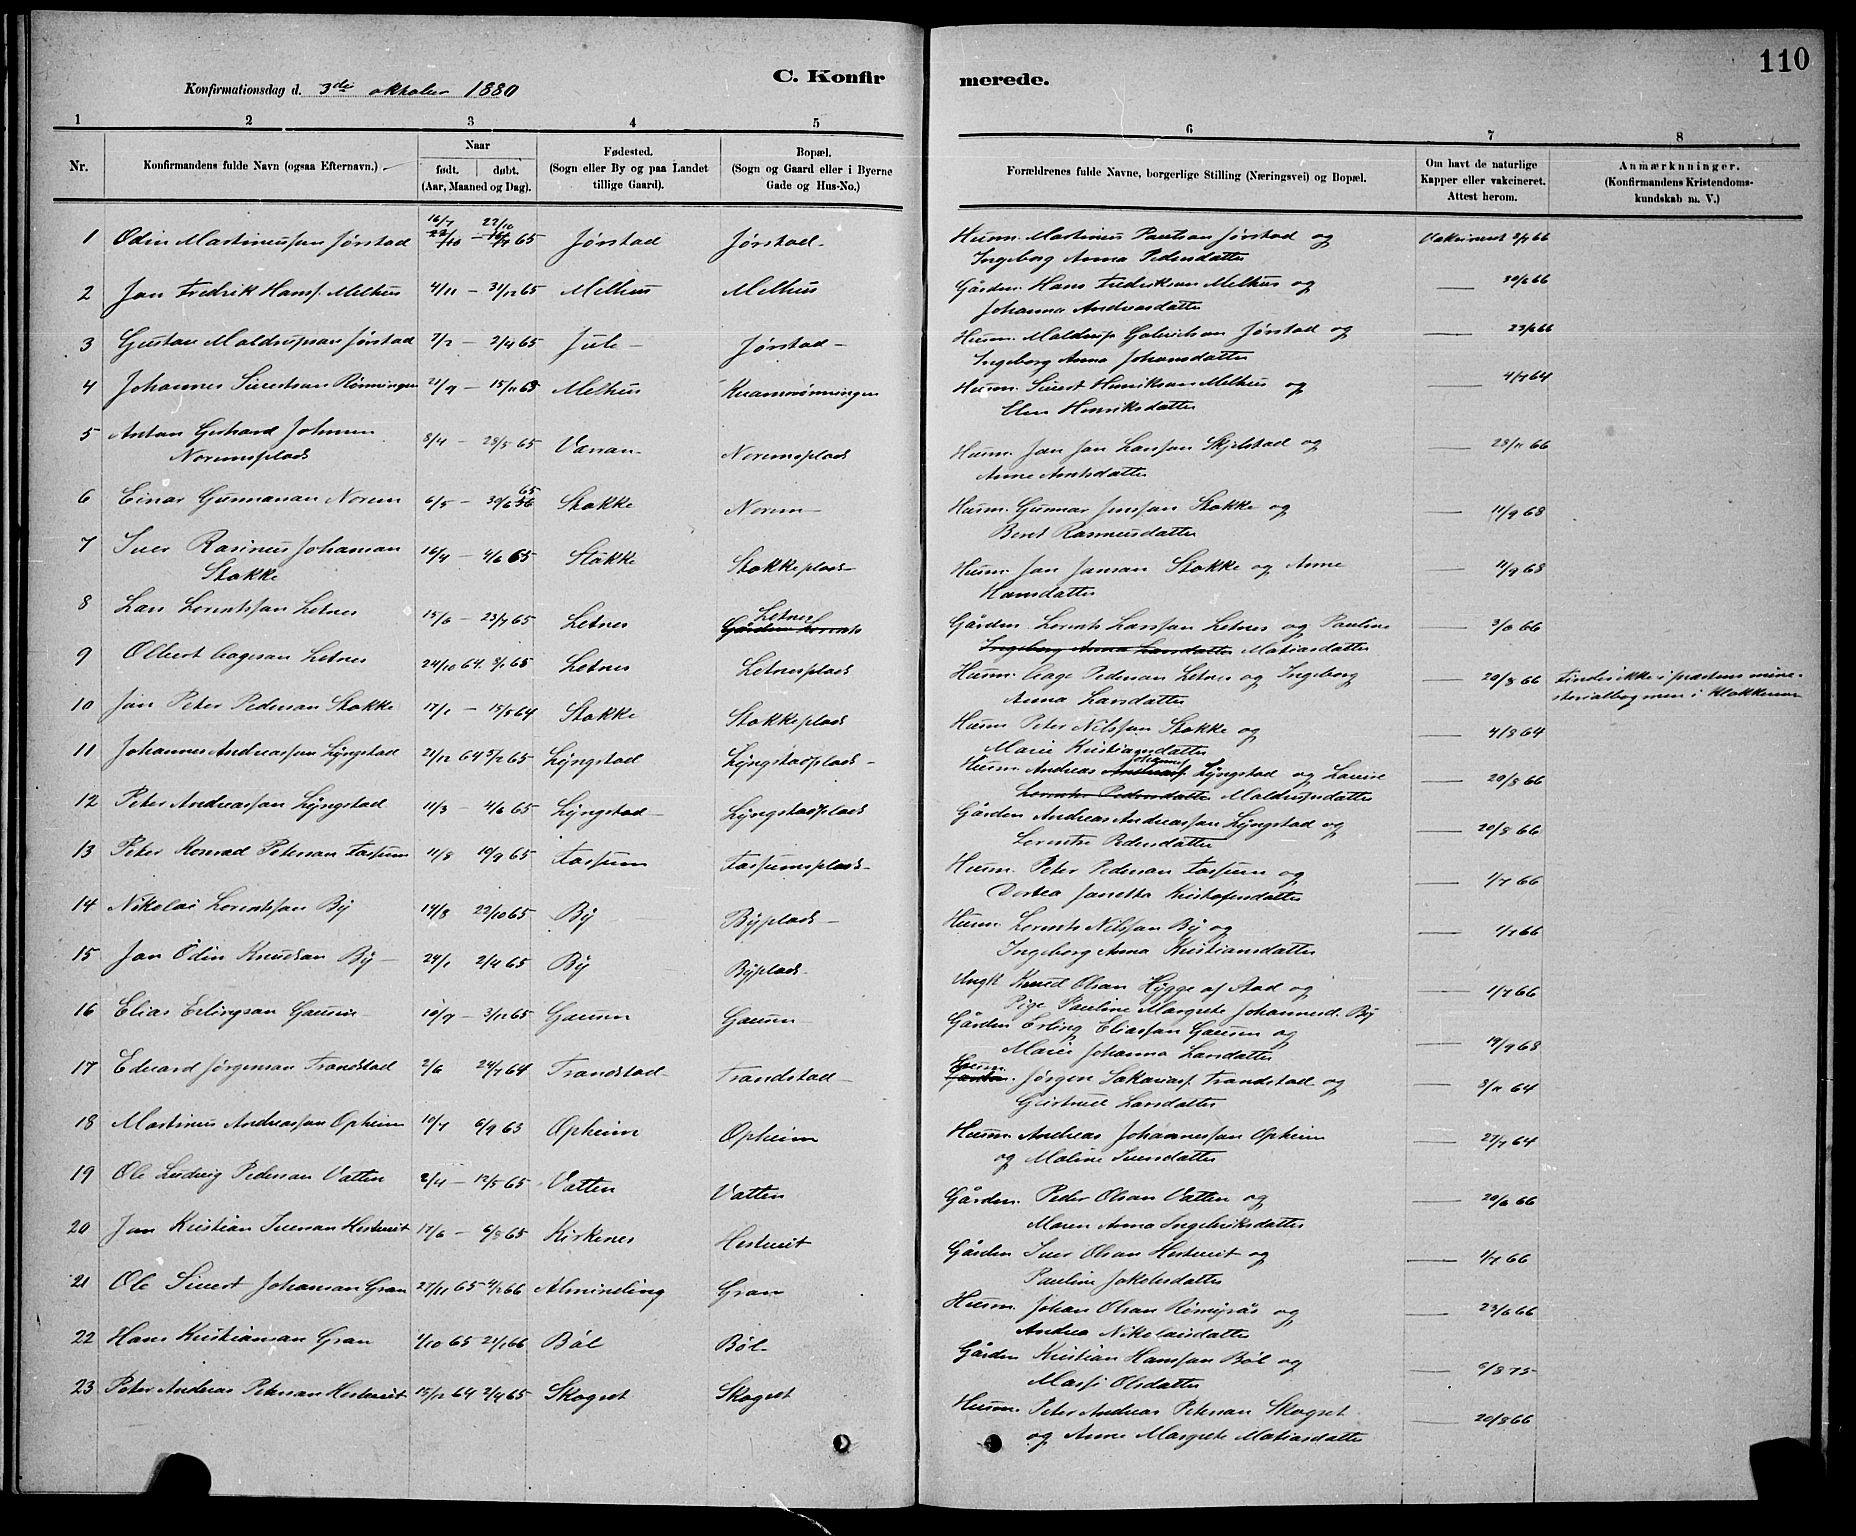 110
C. Konfirmerede.
Konfirmationsdag d. 3die oktober 1880
1 2 3 4 5 6 7 8
Nr.
Konfirmandens fulde Navn (ogsaa Efternavn.)
Naar
født. døbt.
(Aar, Maaned og Dag).
Fødested.
(Sogn eller By og paa Landet
tillige Gaard).
Bopæl.
(Sogn og Gaard eller i Byerne
Gade og Hus-No.)
Forældrenes fulde Navne, borgerlige Stilling (Næringsvei) og Bopæl.
Om havt de naturlige
Kapper eller vakcineret.
Attest herom.
Anmærkninger.
(Konfirmandens Kristendoms-
kundskab m. V.)
1 Odin Martinussen Jørstad 65 Jørstad Jørstad Husm. Martinus Paulsen Jørstad og
Ingeborg Anna Pedersdatter
2 Jon Fredrik Hanss. Melhus 4/11 – 31/12 65 Melhus Melhus Gårdm. Hans Fredriksen Melhus og — 30/6 66
Johanna Andreasdatter
3 Gustav Maldrupsen Jørstad 2/4 65 Jule Jørstad Husm. Maldrup Gabrielsen Jørstad og
Ingeborg Anna Johansdatter
4 Johannes Sivertsen Rønningen Melhus Kvamrønningen Husm. Sivert Henriksen Melhus og
Elen Henriksdatter
5 Anton Gerhard Johnsen 8/4 – 28/5 65 Noremsplads Husm. Jon Larssen Skjelstad og — 28/11 66
Noremsplads
Anne Arntsdatter
6 Einar Gunnarsen Norem 6/5 – 65 Stokke Norem Husm. Gunnar Jenssen Stokke og — 11/9 68
Beret Rasmusdatter
7 Iver Rasinus Johansen 16/4 – 4/6 65 Stokke Stokkeplads Husm. Jon Jonsen Stokke og Anne — 11/9 68
Stokke
Hansdatter
8 Lars Lorentssen Letnes 15/6 – 23/7 65 Letnes Letnes Gården Lorents Gårdm. Lorents Larssen Letnes og Pauline — 66
Ingeborg Anna Larsdatter Matiasdatter
9 Olbert Aagesen Letnes 24/10 64. 65 Letnes Letnesplads Husm. Aage Pedersen Letnes og Ingeborg — 20/8 66 Findes ikke i præstens mine-
Anna Larsdatter
sterialbog men i klokkerens
10 Jon Peter Pedersen Stokke 64 Stokke Stokkeplads Husm. Peter Nilssen Stokke og — 4/8 64
Marie Kristiansdatter
11 Johannes Andreassen Lÿngstad 21/12 64 65 Lÿngstad Lÿngstadplads Husm. Andreas Johannes Lÿngstad og Lovise — 20/8 66
Lorentse Pedersdatter Maldrupsdatter
12 Peter Andreassen Lÿngstad 11/3 4/6 65 Lÿngstad Lÿngstadplads Gården Andreas Andreassen Lÿngstad og — 20/8 66
Lorentse Pedersdatter
13 Peter Konrad Petersen Fossum 11/8 10/9 65 Fossum Fossumsplads Husm. Peter Pedersen Fossum og — 1/7 66
Dortea Janetta Kristofersdatter
14 Nikolai Lorentssen By 14/8 22/10 65 By Byplads Husm. Lorents Nilssen By og — 1/7 66
Ingeborg Anna Kristiansdatter
15 Jon Odin Knudsen By 24/1 2/4 65 By Byplads Ungk. Knud Olsen Hygge af Aad og — 1/7 66
Pige Pauline Margrete Johannesd. By
16 Elias Erlingsen Gausen 10/9 – 3/12 65 Gausen Gausen Gården Erling Eliassen Gausen og — 19/9 68
Marie Johanna Larsdatter
17 Edvard Jørgensen Trandstad 2/6 24/7 64 Trandstad Trandstad Husm. Jørgen Sakarias. Trandstad og — 3/11 64
Gjertrud Larsdatter
18 Martinus Andreassen Opheim 6/9 63 Opheim Opheim Husm. Andreas Johannessen Opheim — 27/7 64
og Maline Iversdatter
19 Ole Ludvig Pedersen Vatten 2/4 – 12/5 65 Vatten Vatten Gårdm. Peder Olsen Vatten og — 20/6 66
Maren Anna Ingebriksdatter
20 Jon Kristian Iversen Hestveit 17/6 – 6/8 65 Kirkenes Hestveit Gården Iver Olsen Hestveit og — 1/7 66
Pauline Jakobsdatter
21 Ole Sivert Johansen Gran 27/11 65 66 Alminding Gran Husm. Johan Olsen Rømyrås og — 23/6 66
Andrea Nikolaisdatter
22 Hans Kristiansen Gran 65 66 Bøl Bøl Gården Kristian Hanssen Bøl og — 6/8 75
Massi Olsdatter
23 Peter Andreas Petersen Hestveit 15/12 64 2/4 65 Skogset Skogset Husm. Peter Andreas Petersen Skogset — 20/8 66
og Anne Margrete Matiasdatter